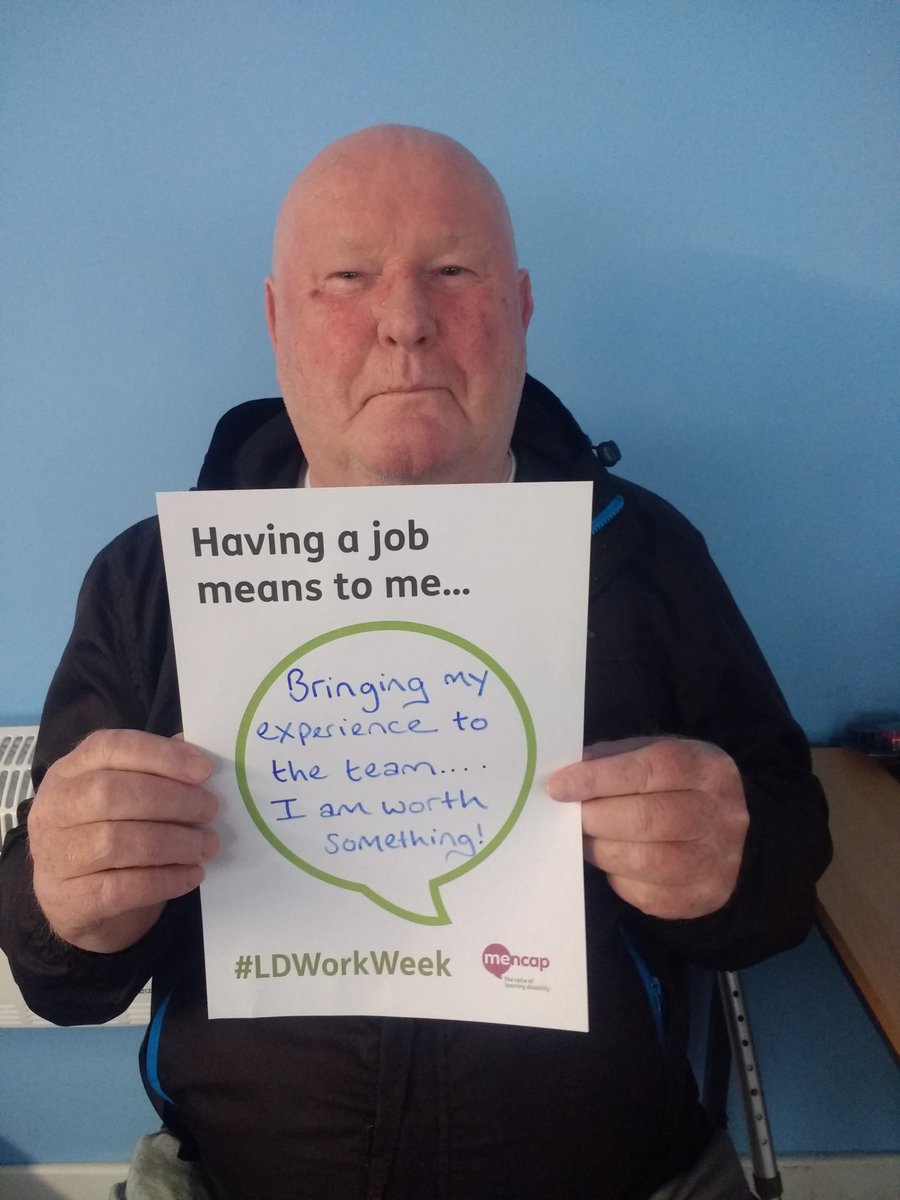 Having a job
means to me...
Bringing my
experience to
the team....
I am worth
something!
#LDWorkWeek
mencap
The voice of
learning disability